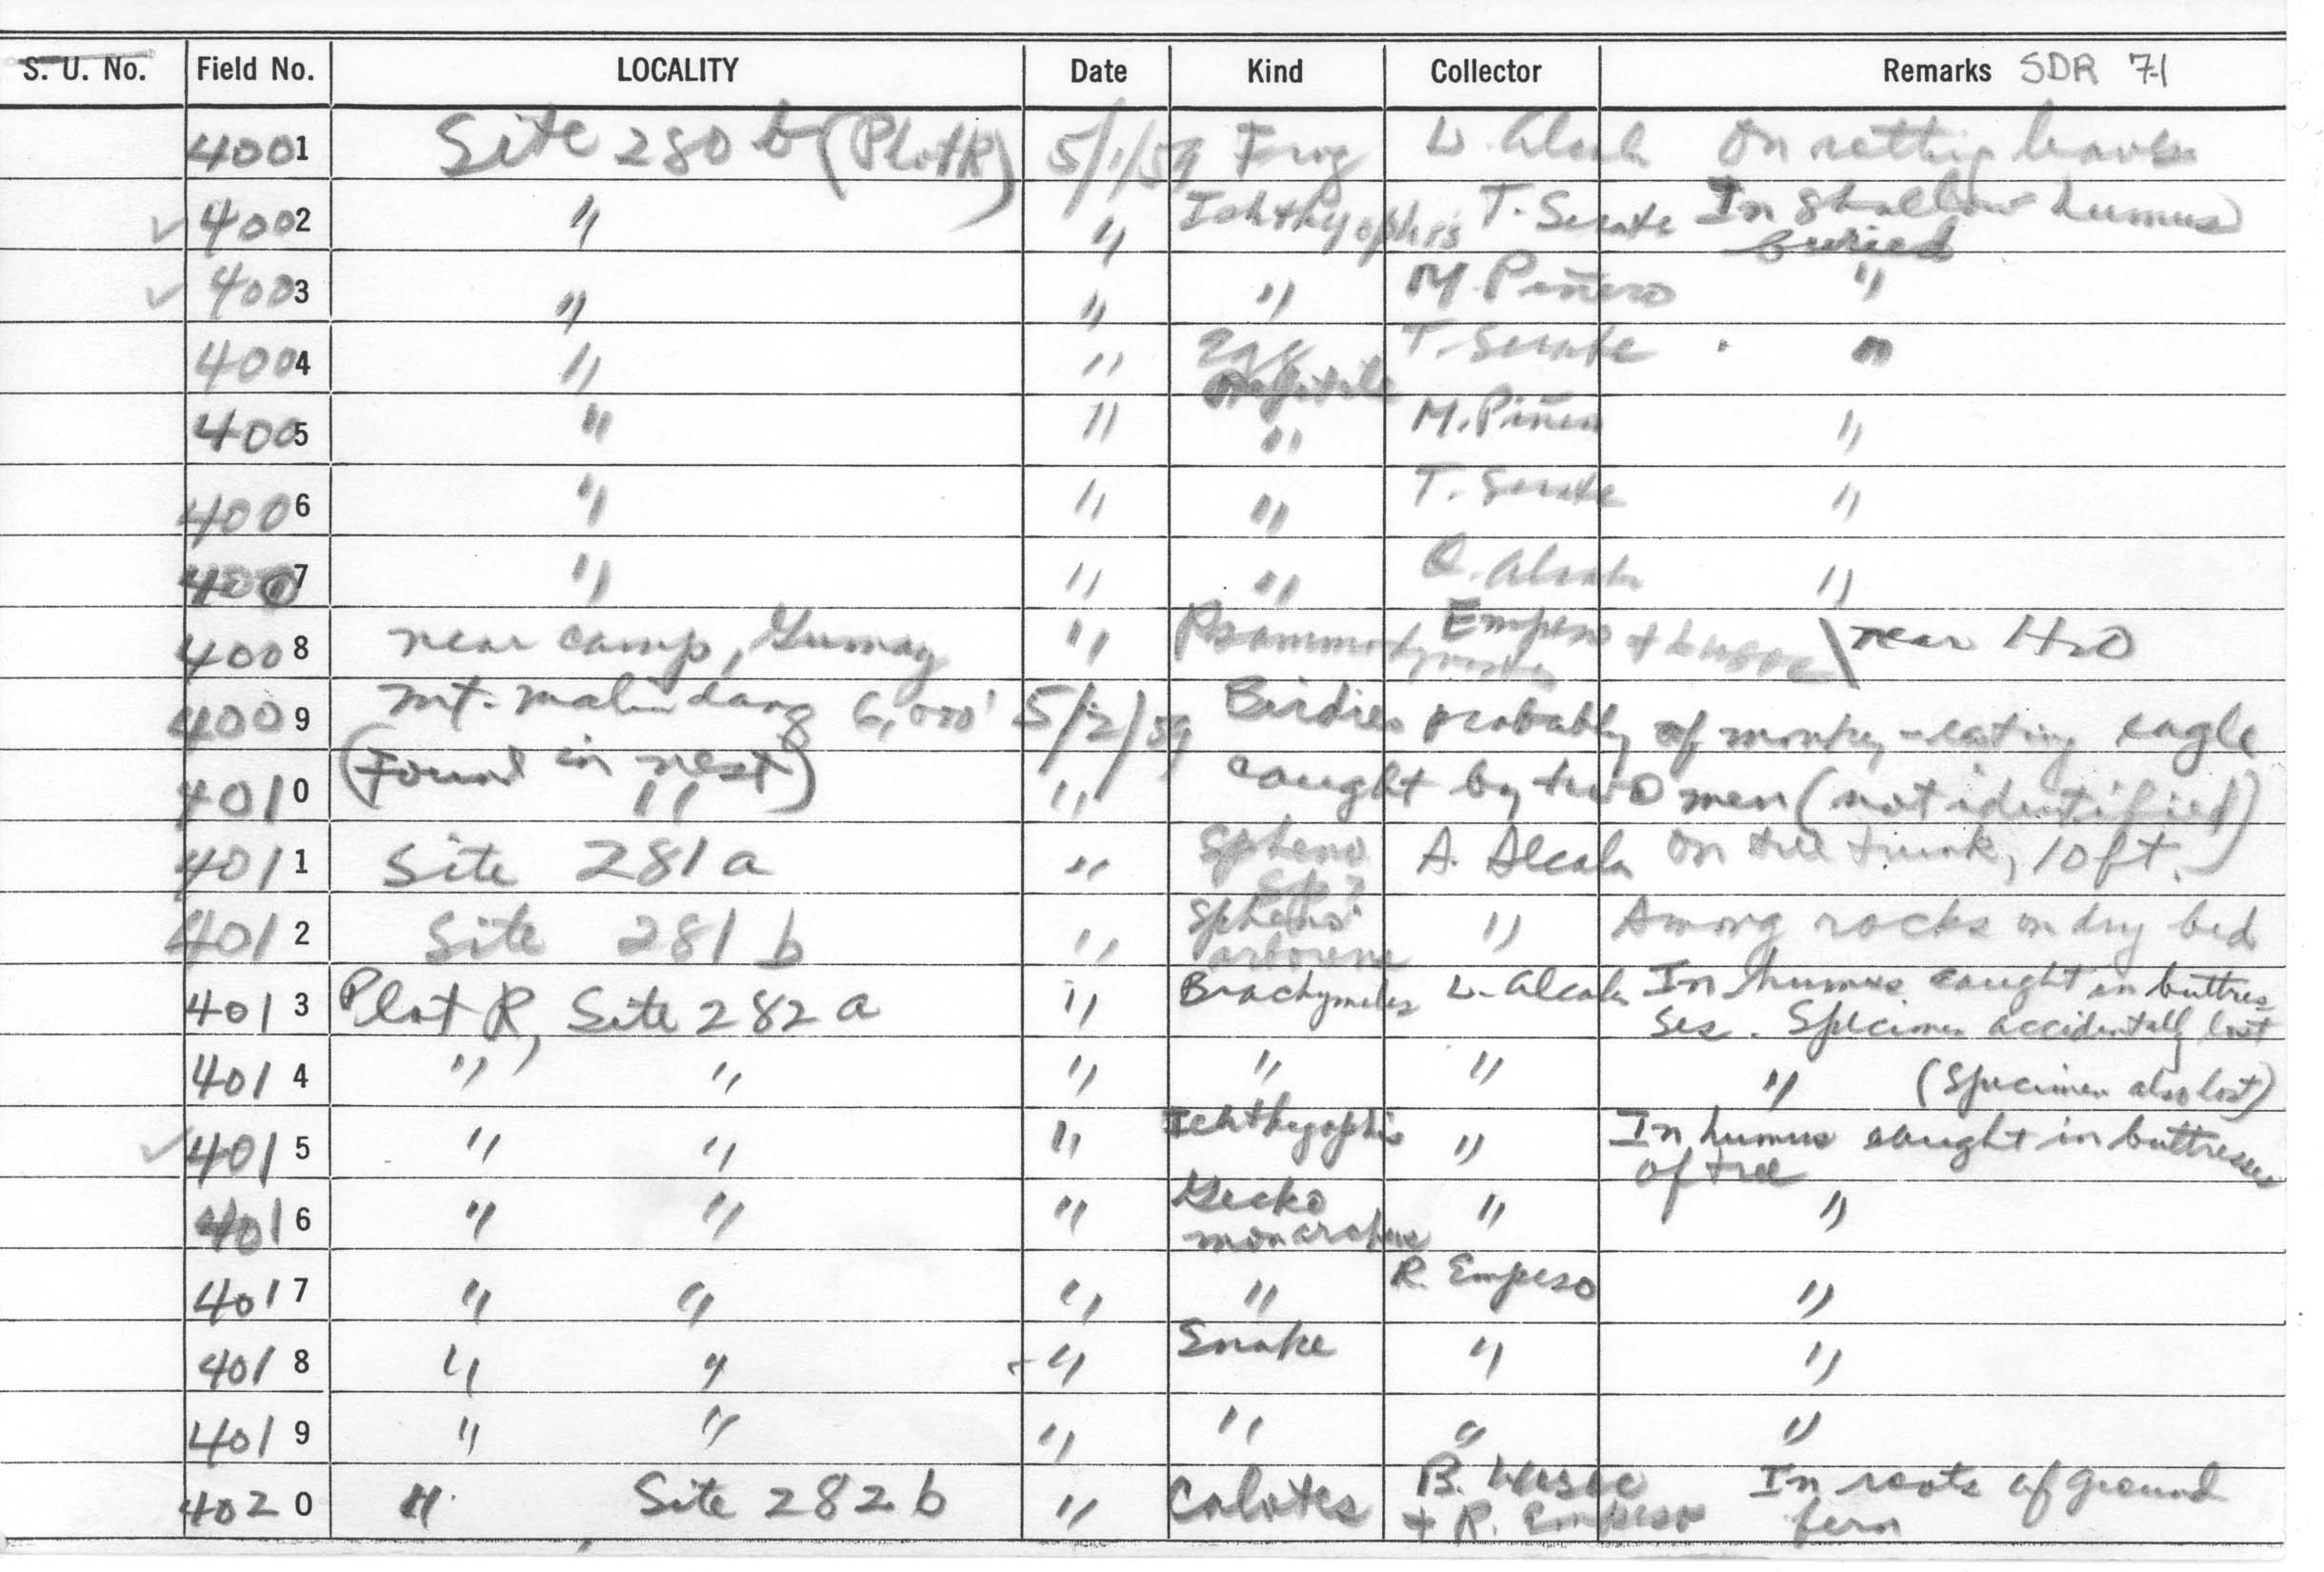 S. U. No. Field No. LOCALITY Date Kind Collector Remarks SDR 71
4001 Site 280 b (Plot R) 5/1/59 Frog L. Alcala On rotting leaves
4002 " " Ichthyophis T. Serate In shallow humus
buried
4003 " " " M. Piñero "
4004 " " Egg T. Serate "
4005 " " " M. Piñero "
4006 " " " T. Serate "
4007 " " " Alcala "
4008 near camp, Gumay " Psammodynastes Empeso + near H2O
4009 Mt. Malindang 6,000' 5/2/59 Birdies probably of monkey-eating eagle
(Found in nest) caught by two men (not identified)
4010 " "
4011 Site 281 a " Spheno A. Alcala On tree trunk, 10 ft.
sp?
4012 Site 281 b " Spheno " Among rocks on dry bed
4013 Plot R, Site 282 a " Brachymeles L. Alcala In humus caught in buttres
ses. Specimen accidentally lost
4014 " " " " " " (Specimen also lost)
4015 " " " Ichthyophis " In humus caught in buttresses
of tree
4016 " " " Gecko " "
monarchus
4017 " " " " R. Empeso "
4018 " " " Snake " "
4019 " " " " " "
4020 " Site 282 b " Calotes B. In roots of ground
+ R. Empeso fern